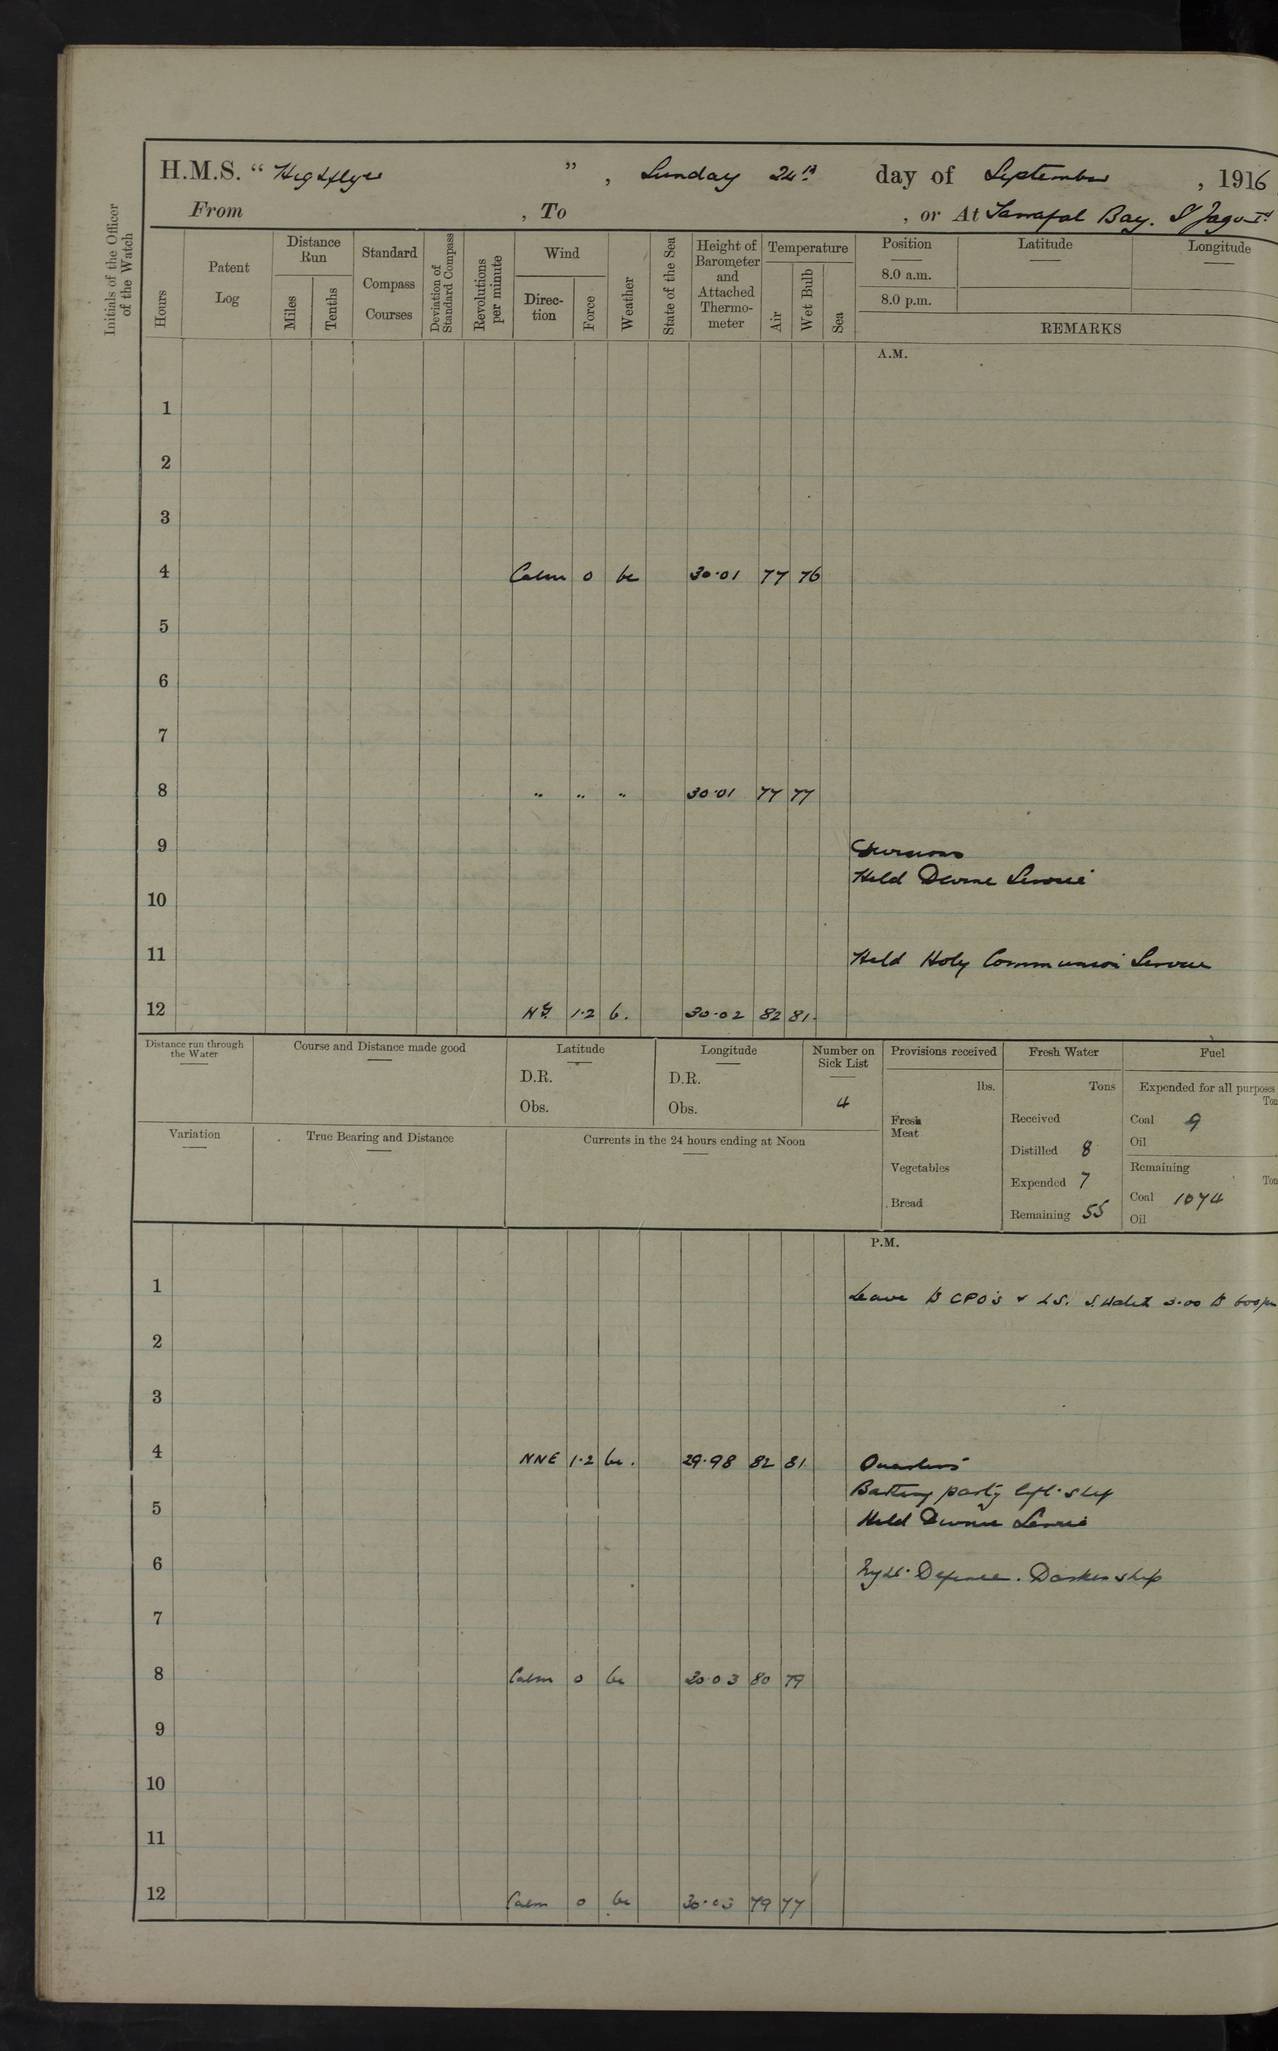 H.M.S. “ Highflyer ” , Sunday 24th day of September , 1916
From , To , or At Tarrafal Bay. St Jago Id
Initials of the Officer of the Watch
Hours
Patent Log
Distance Run
Miles
Tenths
Standard Compass Courses
Deviation of Standard Compass
Revolutions per minute
Wind
Direc-tion
Force
Weather
State of the Sea
Height of Barometer and Attached Thermo-meter
Temperature
Air
Wet Bulb
Sea
Position Latitude Longitude
8.0 a.m.
8.0 p.m.
REMARKS
A.M.
1
2
3
4 Calm 0 bc 30.01 77 76
5
6
7
8 " " " 30.01 77 77
9 Divisions
Held Divine Service
10
11 Held Holy Communion Service
12 1.2 b. 30.02 82 81.
Distance run through the Water
Course and Distance made good
Latitude
D.R.
Obs.
Longitude
D.R.
Obs.
Number on Sick List
4
Provisions received
lbs.
Fresh Meat
Vegetables
Bread
Fresh Water
Tons
Received
Distilled 8
Expended 7
Remaining 55
Fuel
Expended for all purposes
Coal 9
Oil
Remaining
Coal 1074
Oil
Variation
True Bearing and Distance
Currents in the 24 hours ending at Noon
P.M.
1 Leave to CPO's & 3.00 to 600pm
2
3
4 NNE 1.2 bc. 29.98 82 81 Quarters
Bathing party left ship
5 Held Divine Service
6 Night Defence. Darken ship
7
8 Calm 0 bc 30.03 80 79
9
10
11
12 Calm 0 bc 30.03 79 77